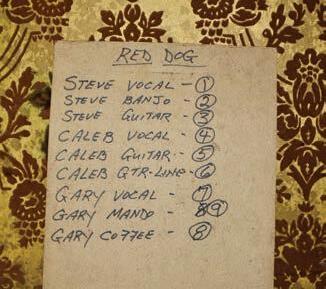 RED DOG
STEVE VOCAL - 1
STEVE BANJO - 2
STEVE GUITAR - 3
CALEB VOCAL - 4
CALEB GUITAR - 5
CALEB GTR-LINE - 6
GARY VOCAL - 7
GARY MANDO - 9
GARY COFFEE - 8